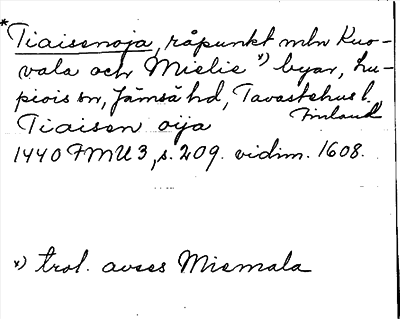 *Tiaisenoja, råpunkt mln Kuo-
vala och Mielie x) byar, Lu-
piois sn, Jämsä hd, Tavastehus l.
Finland
Tiaisen oija
1440 FMU 3, s. 209. vidim. 1608.
x) trol. avses Miemala